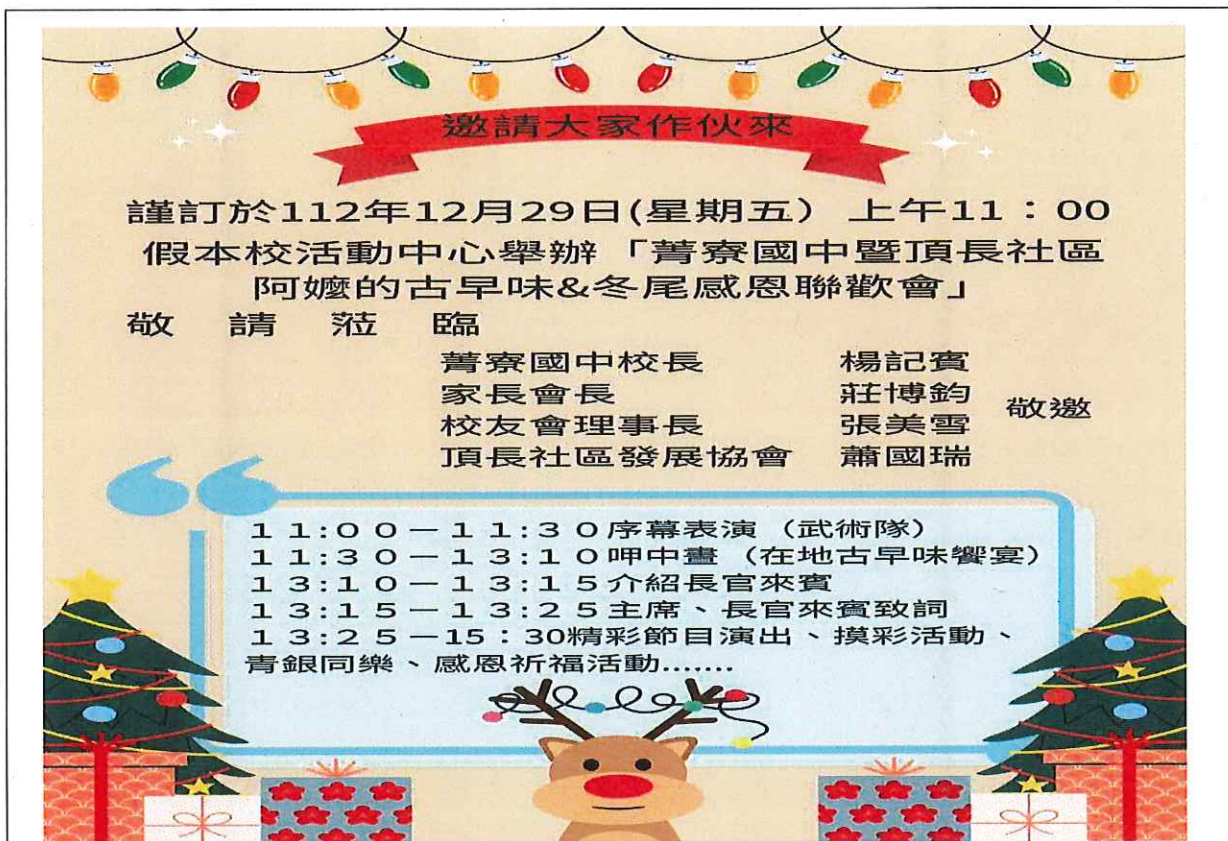 邀請大家作伙來
謹訂於112年12月29日(星期五) 上午11：00
假本校活動中心舉辦「菁寮國中暨頂長社區
阿嬤的古早味&冬尾感恩聯歡會」
敬請蒞臨
菁寮國中校長 楊記賓
家長會長 莊博鈞
校友會理事長 張美雪
頂長社區發展協會 蕭國瑞
敬邀
11:00－11:30序幕表演（武術隊）
11:30－13:10呷中晝（在地古早味饗宴）
13:10－13:15介紹長官來賓
13:15－13:25主席、長官來賓致詞
13:25－15：30精彩節目演出、摸彩活動、
青銀同樂、感恩祈福活動.......